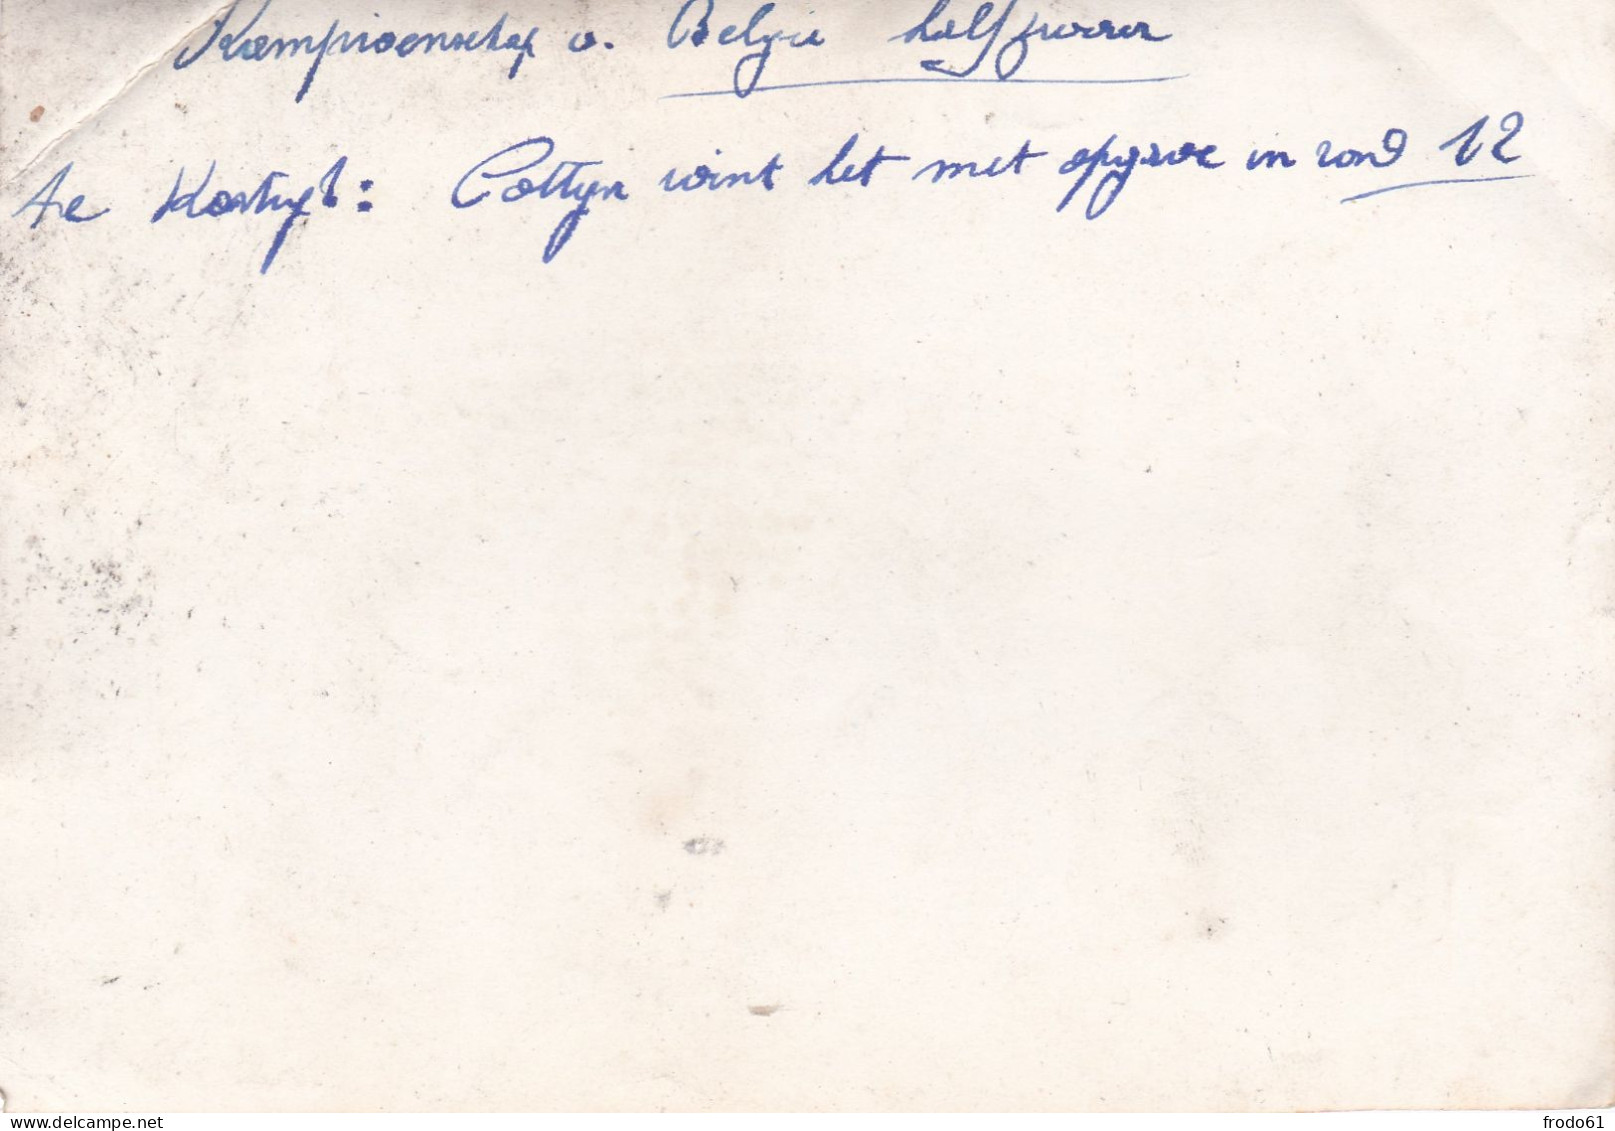 Kampioenschap v. België halfzwaar
te Kortrijk: Cottyn wint het met opgave in rond 12
www.delcampe.net
frodo61